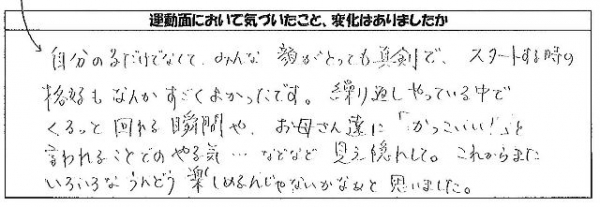 運動面において気づいたこと、変化はありましたか
自分の子だけでなくて、みんな 顔がとっても真剣で、スタートする時の
格好も なんか すごくよかったです。繰り返しやっている中で
くるっと 回れる 瞬間や、お母さん達に「かっこいい!」と
言われることでのやる気…などなど 見え隠れして。これからまた
いろいろな うんどう 楽しめるんじゃないかなぁと 思いました。